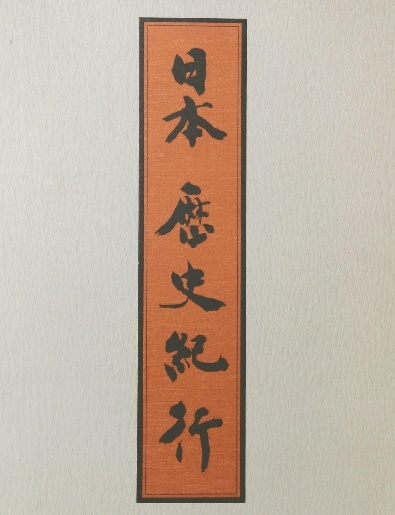 日本 歴史紀行